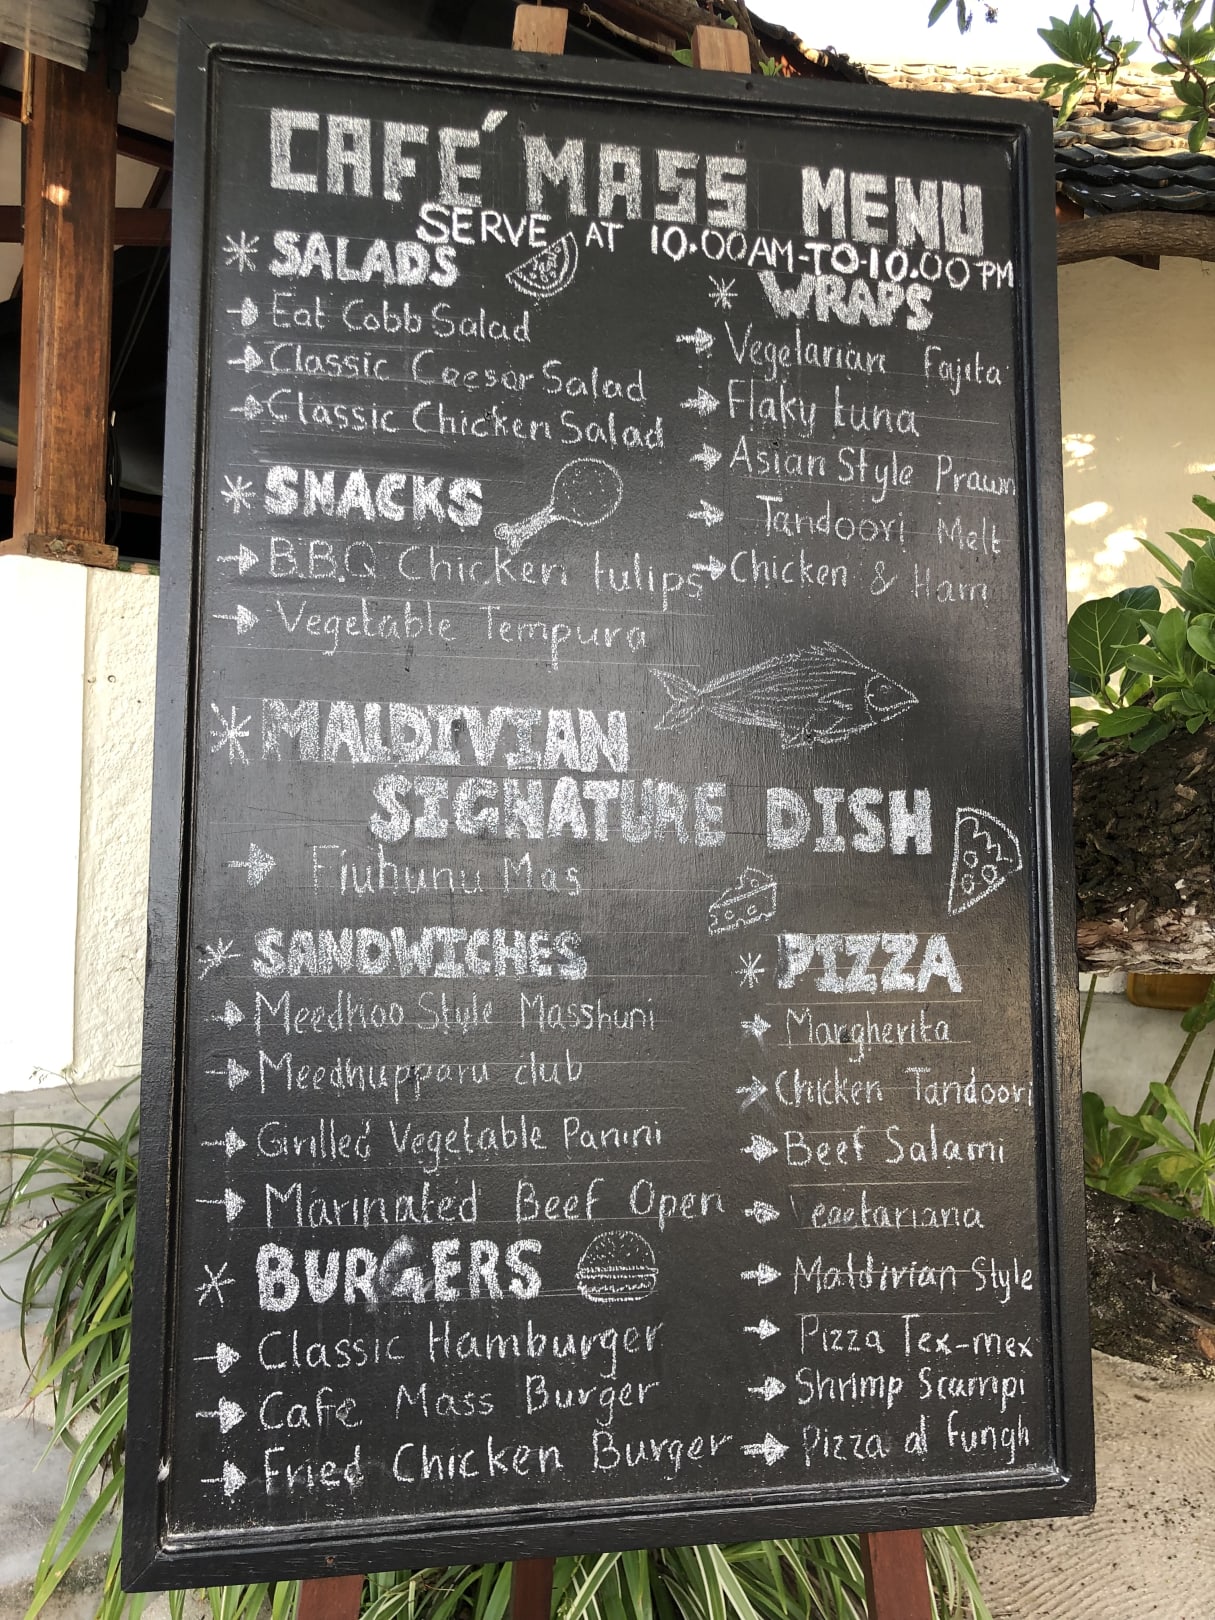 CAFÉ MASS MENU
SERVE AT 10.00AM-TO-10.00PM
* SALADS
Eat Cobb Salad
Classic Ceesar Salad
Classic Chicken Salad
* SNACKS
B.B.Q Chicken tulips
Vegetable Tempura
* WRAPS
Vegetarian Fajita
Flaky tuna
Asian Style Prawn
Tandoori Melt
Chicken & Ham
* MALDIVIAN
SIGNATURE DISH
Fiuhunu Mas
* SANDWICHES
Meedhoo Style Masshuni
Meedhupparu club
Grilled Vegetable Panini
Marinated Beef Open
* BURGERS
Classic Hamburger
Cafe Mass Burger
Fried Chicken Burger
* PIZZA
Margherita
Chicken Tandoori
Beef Salami
Maldivian Style
Pizza Tex-mex
Shrimp Scampi
Pizza al fungh